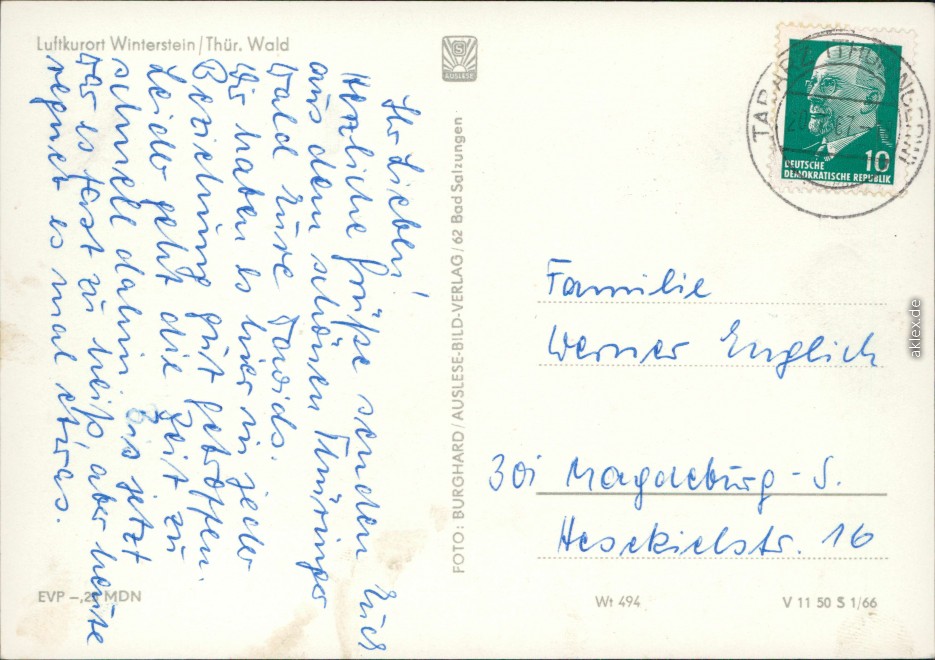 Luftkurort Winterstein/Thür. Wald
Ihr Lieben!
Herzliche Grüße senden Euch
aus dem schönen Thüringer
Wald Eure Davids.
Wir haben es hier in jeder
Beziehung gut getroffen.
Leider geht die Zeit zu
schnell dahin. Bis jetzt
war es fast zu heiß, aber heute
regnet es mal etwas.
EVP -,2 MDN
AUSLESE
FOTO: BURGHARD/AUSLESE-BILD-VERLAG/62 Bad Salzungen
TABARZ (THÜRINGERW)
DEUTSCHE
DEMOKRATISCHE REPUBLIK
10
Familie
Werner Englich
301 Magdeburg-S.
Hesekielstr. 16
Wt 494
V 11 50 S 1/66
aklex.de